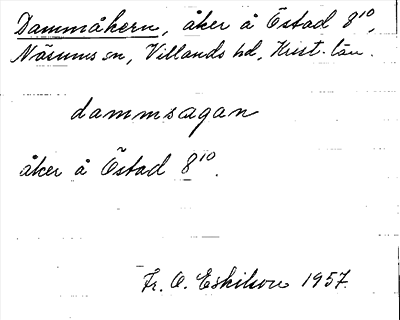 Dammåkern, åker å Östad 8¹⁰,
Näsums sn, Villands hd, Krist. län.
dammsagan
åker å Östad 8¹⁰.
Fr. O. Eskilson 1957.